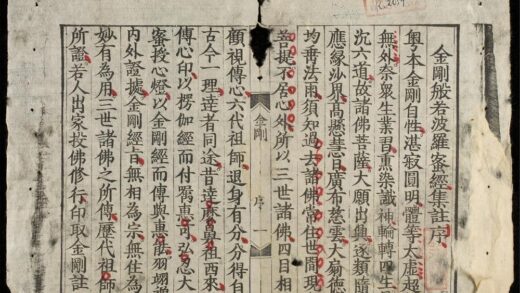 金剛般若波羅蜜經集註序
粵本金剛自性湛寂圓明體等太虛超
無外奈衆生業習熏染識神輪轉四生
沉六道故諸佛菩薩大願出興逐類隨
應緣沙界高懸慧日廣布慈雲大德
均垂法雨須知過去諸佛常住世間現
菩提不居心外所以三世諸佛四目相
金剛 序 一
顧視傳心六代祖師退身有分分得自
古今一理達者同途昔達摩鼻祖西來
傳心印以楞伽經而付囑惠可弘忍大
蜜授心燈以金剛經而傳與惠能
内外證據金剛經旨無相為宗無住為
妙有為用三世諸佛之所傳歷代祖師
所證若人出家投佛修行印取金剛註